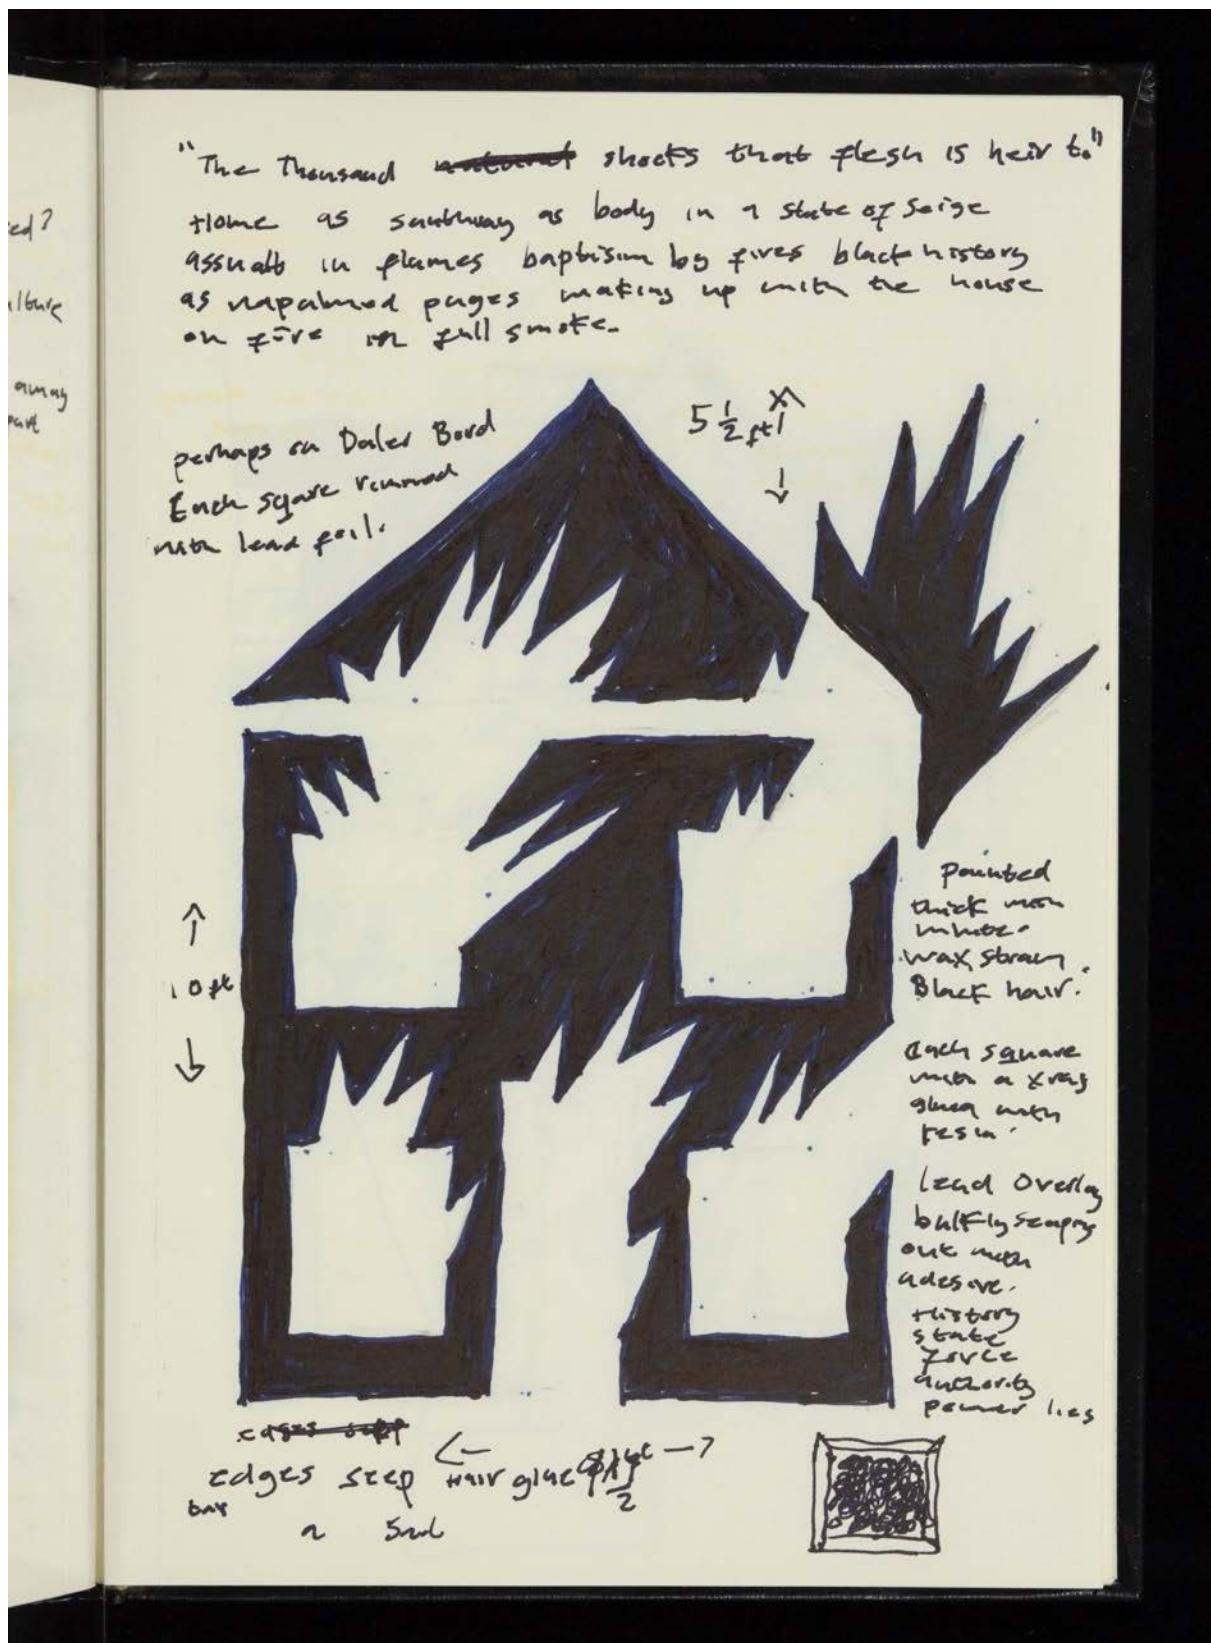 ed?
ulture
away
part
"The Thousand natural shocks that flesh is heir to"
Home as sanctuary as body in a state of Seige
assualt in flames baptism by fires black history
as napalmed pages making up with the house
on fire in full smoke.
perhaps on Daler Bord
Each sqare rimmed
with lead foil.
5 1/2 ft
10 ft
painted
thick with
white
wax, strain
Black hair.
Each square
with a xray
glued with
resin.
lead Overlay
bulkly seaping
out with
adesive.
History
state
force
authority
power lies
edges seep
edges seep Hair glue
a Sad